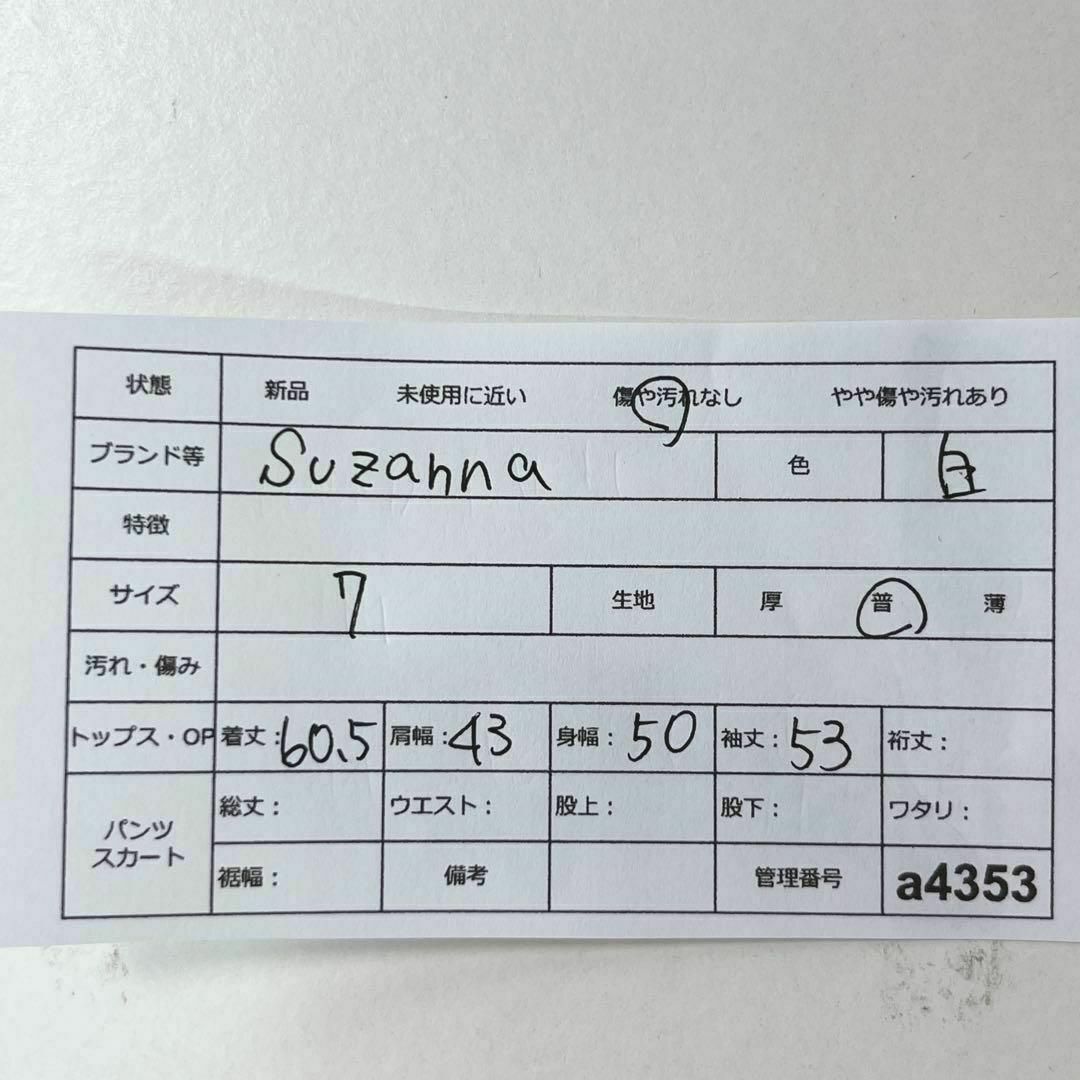 状態 新品 未使用に近い 傷や汚れなし やや傷や汚れあり
ブランド等 Suzanna 色 白
特徴
サイズ 7 生地 厚 普 薄
汚れ・傷み
トップス・OP 着丈:60.5 肩幅:43 身幅:50 袖丈:53 裄丈:
パンツ
スカート
総丈: ウエスト: 股上: 股下: ワタリ:
裾幅: 備考 管理番号 a4353